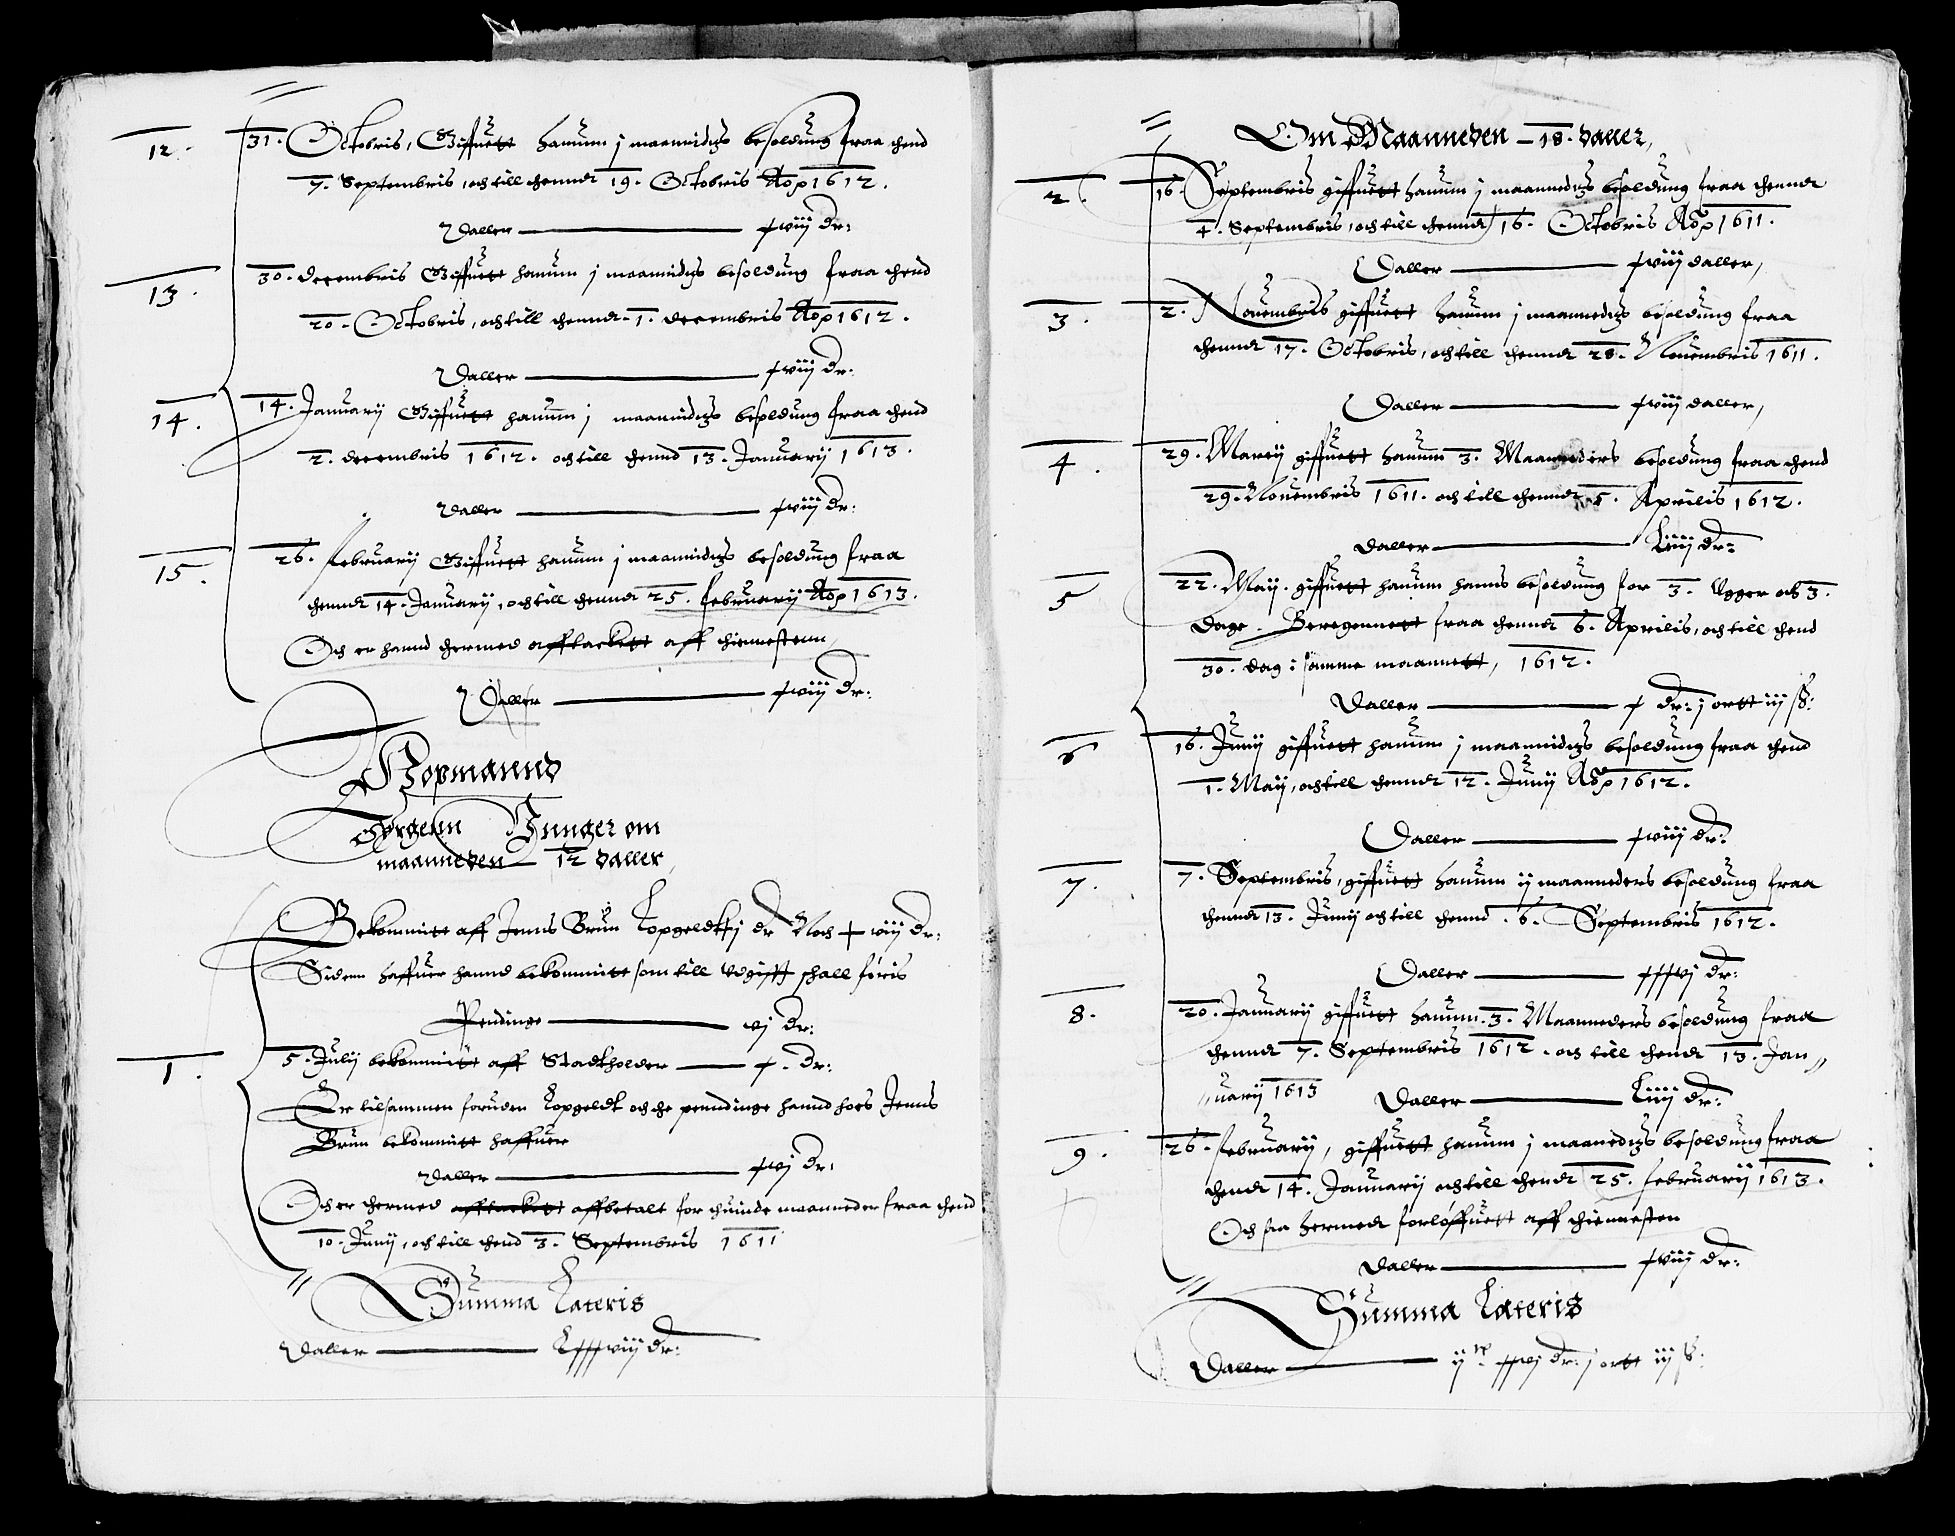 12. 31. Octobris, Giffuett hanum j maanidtzs besoldung fraa thend
7. Septembris, och till thennd 19. Octobris Aop 1612.
Daller ——— xviij dr:
13. 30. decembris Giffuett hanum j maanidtzs besoldung fraa thend
20. Octobris, och till thennd 1. decembris Aop 1612.
Daller ——— xviij dr:
14. 14. January Giffuett hanum j maanidtzs besoldung fraa thend
2. decembris 1612. och till thennd 13. January 1613.
Daller ——— xviij dr:
15. 26. february Giffuett hanum j maanidtzs besoldung fraa
thennd 14. January, och till thennd 25. february Aop 1613.
Och er hannd thermed afftackett aff thiennestenn,
Daller ——— xviij dr:
Hopmannd
Jørgenn Yunger om
maanneden – 12 daller,
Bekommitt aff Jenns Brun Løpgeldt dr Noch x viij dr:
Sidenn haffuer hannd bekommitt som till Udgifft shall føris
Pendinge ——— vj dr:
1. 5. Julij bekommitt aff Stadtholder ——— x. dr:
Er tilsammen foruden Løpgeldt och the penndinge hannd hoes Jenns
Brun bekommitt haffuer
Daller ——— xvj dr:
Och er thermed afftackett affbetalt for thuinde maanneder fraa thend
10. Junij, och till thend 3. Septembris 1611
Summa Lateris
Daller ——— Lxxxviij dr:
Om Maanneden – 18. daller,
2. 16. Septembris giffuett hanum j maannedtzs besoldung fraa thennd
4. Septembris, och till thennd 16. Octobris Aop 1611.
Daller ——— xviij daller,
3. 2. Nouembris giffuett hanum j maannedtzs besoldung fraa
thennd 17. Octobris, och till thennd 28. Nouembris 1611.
Daller ——— xviij daller,
4. 29. Marty giffuett hanum 3. Maanneders besoldung fraa thend
29. Nouembris 1611. och till thennd 5. Aprilis 1612.
Daller ——— Liiij dr:
5 22. Maij. giffuett hanum hanns besoldung for 3. Ugger och 3.
Dage. Beregennett fraa thennd 6. Aprilis, och till thend
30. dag i samme maannett, 1612.
Daller ——— x dr: j ortt iij ß:
6 16. Junij giffuett hanum j maannidtzs besoldung fraa thend
1. Maij, och till thennd 12. Junij Aop 1612.
Daller ——— xviij dr:
7. 7. Septembris, giffuett hanum ij maanneders besoldung fraa
thennd 13. Junij och till thennd. 6. Septembris 1612.
Daller ——— xxxvj dr:
8. 20. January giffuett hanum. 3. Maanneders besoldung fraa
thennd 7. Septembris 1612. och till thend 13. Jan„
„uary 1613 Daller ——— Liiij dr:
9. 26. february, giffuett hanum j maanedtzs besoldung fraa
thend 14. January och till thend 25. february 1613.
Och saa hermed forløffuett aff thiennesten
Daller ——— xviij dr:
Summa Lateris
Daller ——— ijc. xxvj dr: j ortt iij ß: